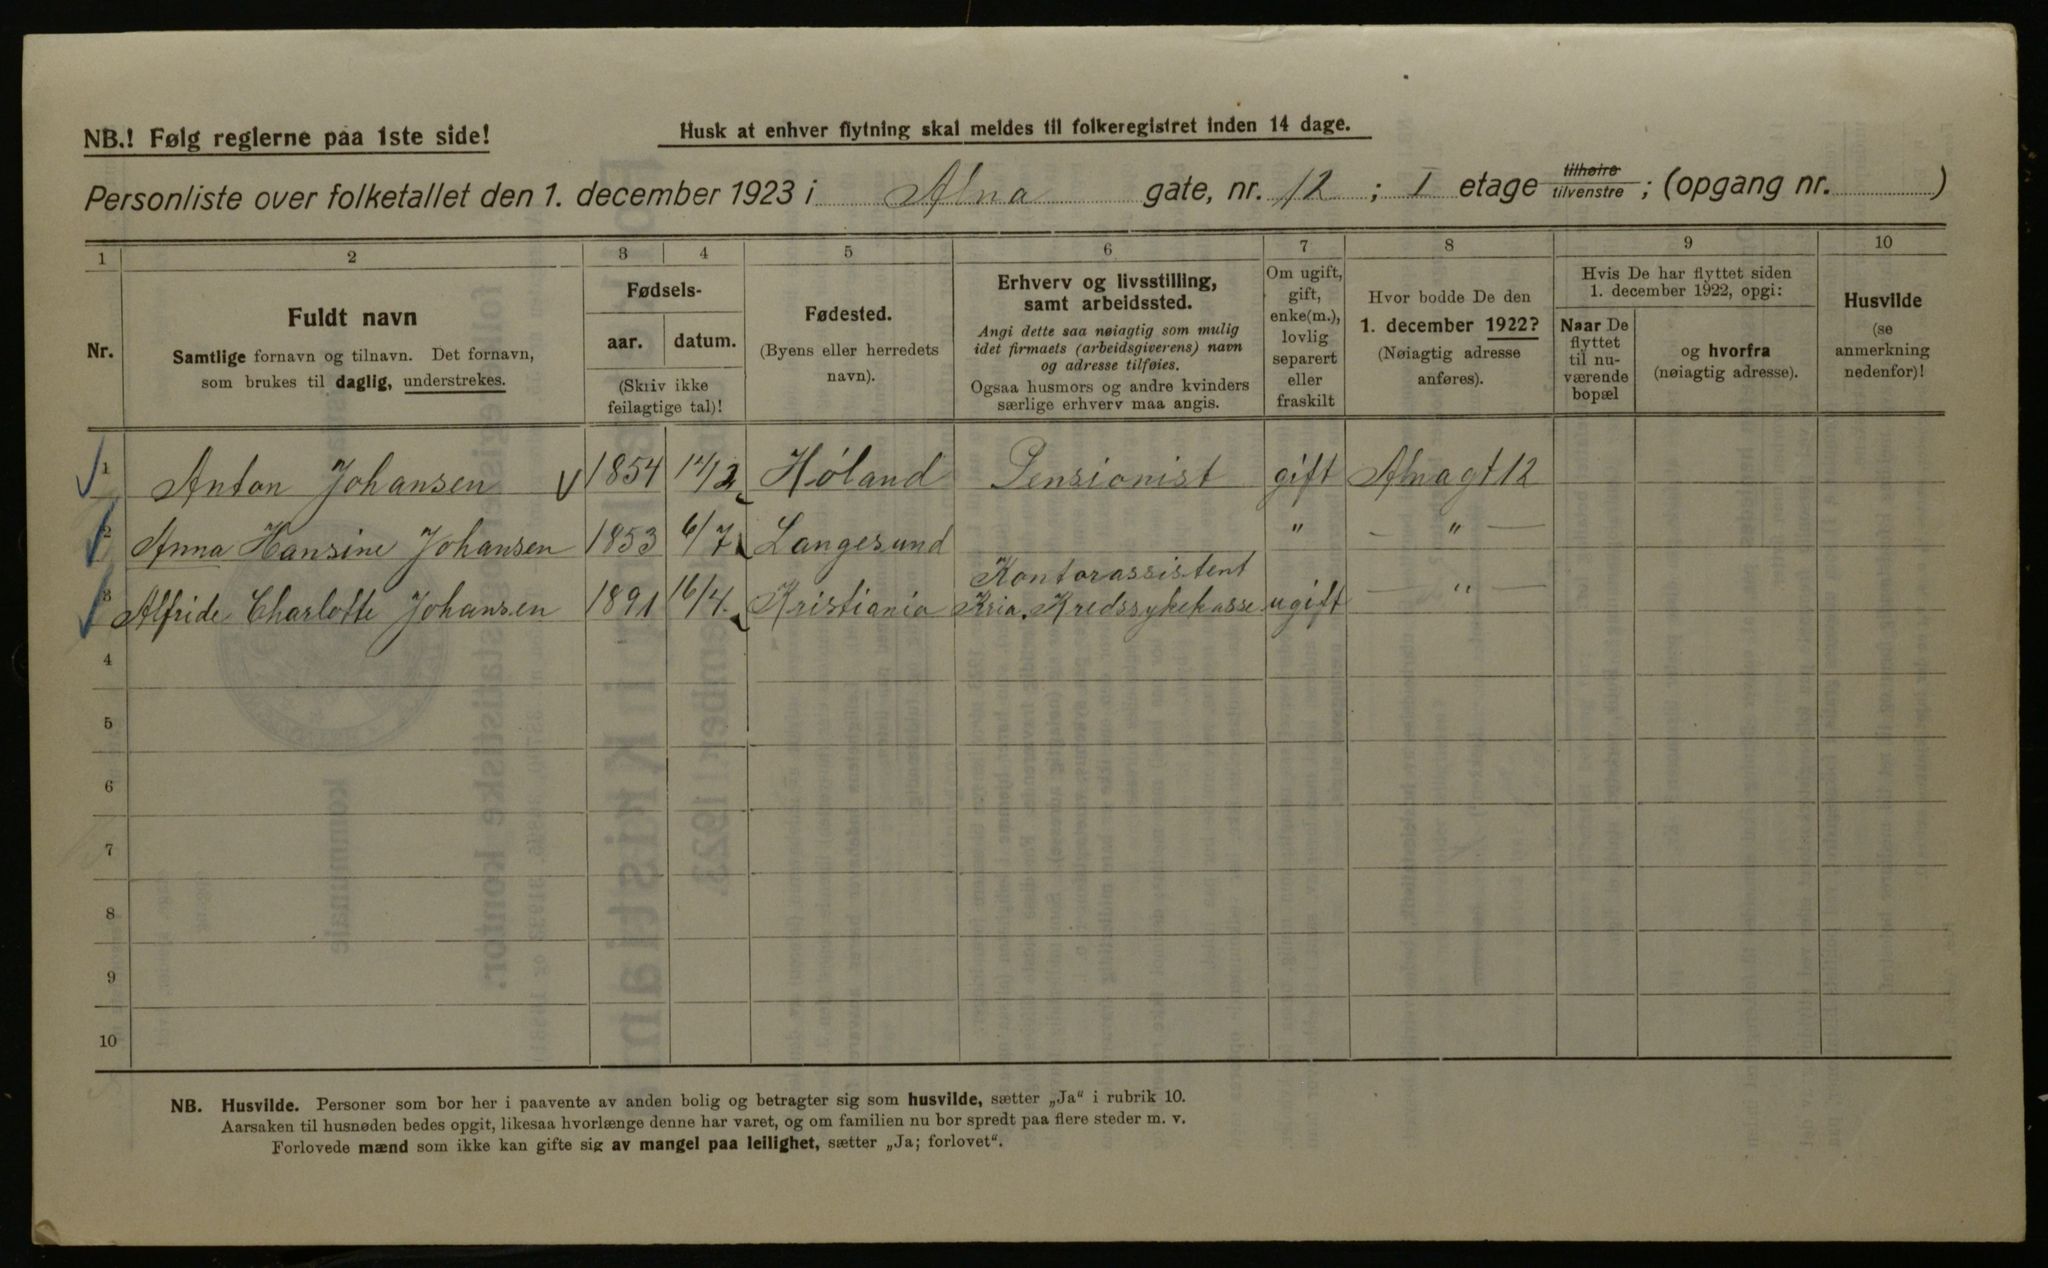 NB.! Følg reglerne paa 1ste side!
Husk at enhver flytning skal meldes til folkeregistret inden 14 dage.
Personliste over folketallet den 1. december 1923 i Alna gate, nr. 12 ; I etage tilhøire tilvenstre ; (opgang nr. )
1 2 3 4 5 6 7 8 9 10
Nr.
Fuldt navn
Samtlige fornavn og tilnavn. Det fornavn,
som brukes til daglig, understrekes.
Fødsels-
aar. datum.
(Skriv ikke
feilagtige tal)!
Fødested.
(Byens eller herredets
navn).
Erhverv og livsstilling,
samt arbeidssted.
Angi dette saa nøiagtig som mulig
idet firmaets (arbeidsgiverens) navn
og adresse tilføies.
Ogsaa husmors og andre kvinders
særlige erhverv maa angis.
Om ugift,
gift,
enke(m.),
lovlig
separert
eller
fraskilt
Hvor bodde De den
1. december 1922?
(Nøiagtig adresse
anføres).
Hvis De har flyttet siden
1. december 1922, opgi:
Naar De
flyttet
til nu-
værende
bopæl
og hvorfra
(nøiagtig adresse).
Husvilde
(se
anmerkning
nedenfor)!
1 Anton Johansen 1854 Høland Pensionist gift Alnagt 12
2 Anna Hansine Johansen 1853 6/7 Langesund " — " —
Kontorassistent
3 Alfride Charlotte Johansen 1891 16/4. Kristiania Kria. Kredssykekasse ugift — " —
4
5
6
7
8
9
10
NB. Husvilde. Personer som bor her i paavente av anden bolig og betragter sig som husvilde, sætter „Ja“ i rubrik 10.
Aarsaken til husnøden bedes opgit, likesaa hvorlænge denne har varet, og om familien nu bor spredt paa flere steder m. v.
Forlovede mænd som ikke kan gifte sig av mangel paa leilighet, sætter „Ja; forlovet“.